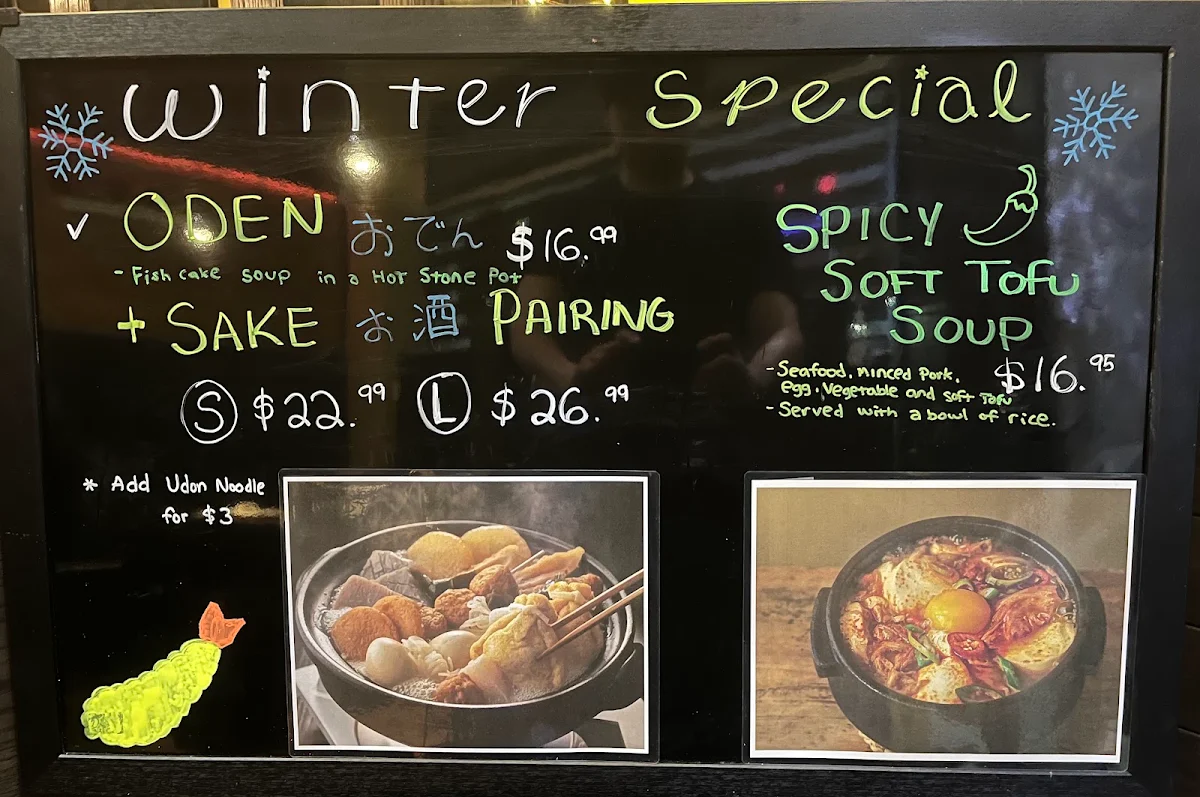 Winter Special
✓ ODEN おでん $16.99
- Fish cake soup in a Hot Stone Pot
+ SAKE お酒 PAIRING
Ⓢ $22.99 Ⓛ $26.99
* Add Udon Noodle
for $3
SPICY
SOFT TOFU
SOUP
$16.95
- Seafood, minced Pork,
egg, Vegetable and soft Tofu
- Served with a bowl of rice.